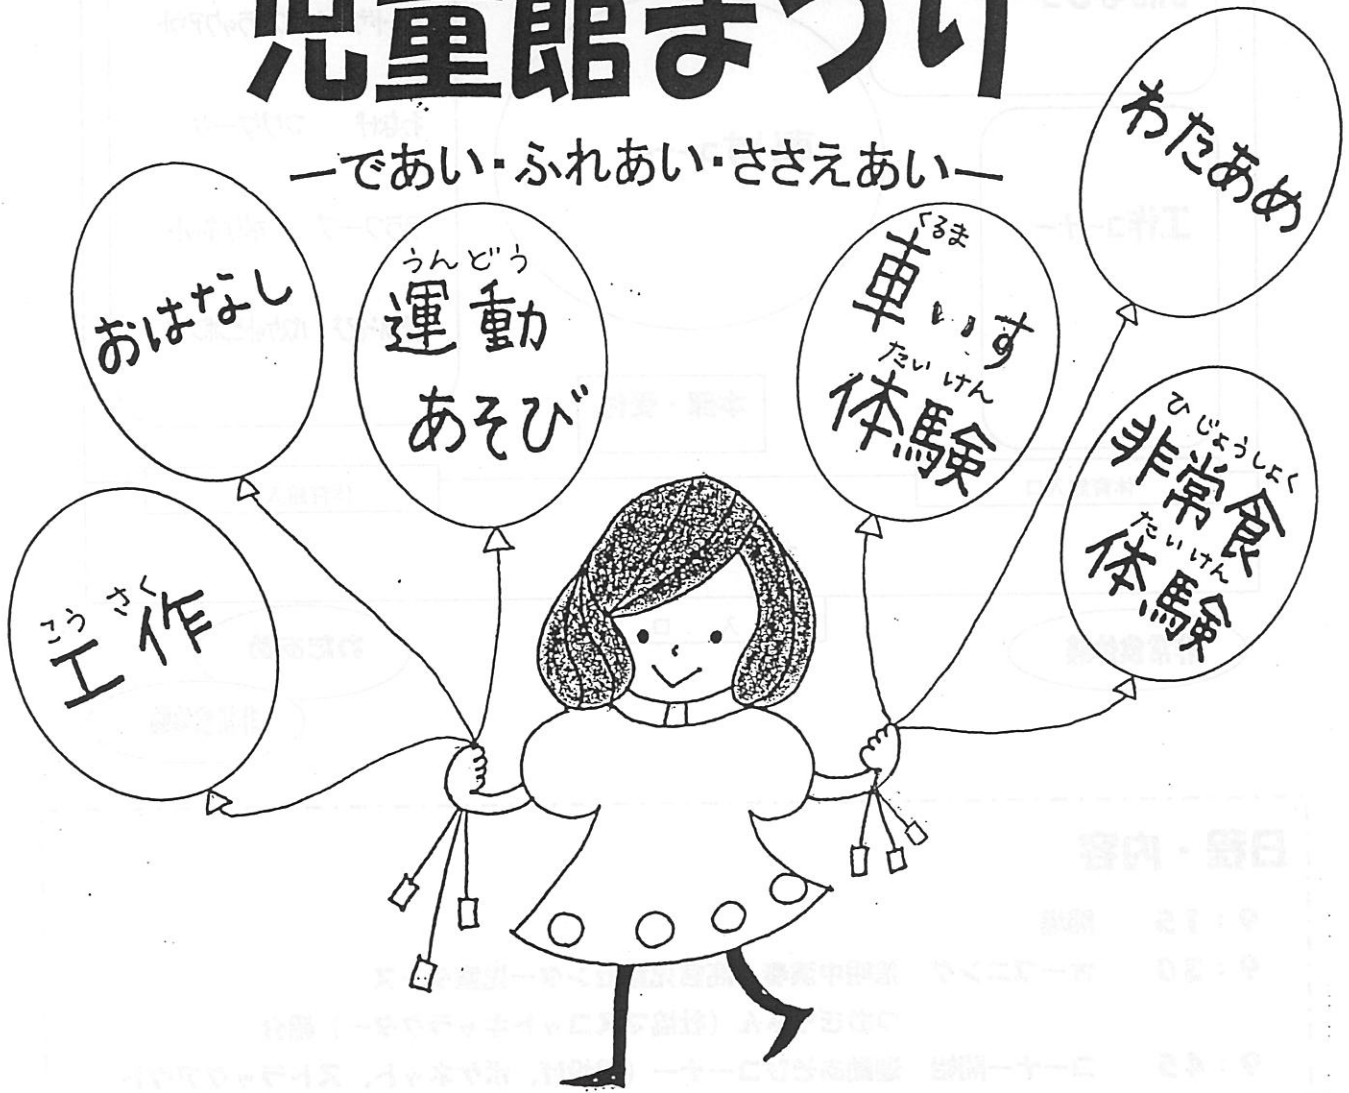 児童館まつり
―であい・ふれあい・ささえあい―
わたあめ
おはなし
うんどう
運動
あそび
くるま
車いす
たいけん
体験
ひじょうしょく
非常食
たいけん
体験
こうさく
工作